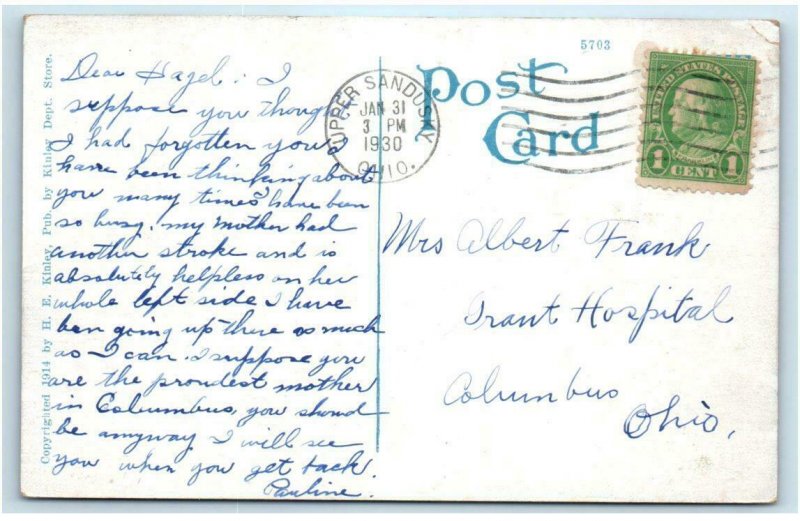 Copyrighted 1914 by H. E. Kinley, Pub. by Kinley Dept. Store.
Dear Hazel: I
suppose you thought
I had forgotten you. I
have been thinking about
you many times I have been
so busy. my mother had
another stroke and is
absolutely helpless on her
whole left side I have
ben going up there as much
as I can. I suppose you
are the proudest mother
in Columbus, you should
be anyway I will see
you when you get back.
Pauline.
UPPER SANDUSKY
JAN 31
3 PM
1930
OHIO.
Post
Card
5703
UNITED STATES POSTAGE
FRANKLIN
1 CENT 1
Mrs Albert Frank
Grant Hospital
Columbus
Ohio,